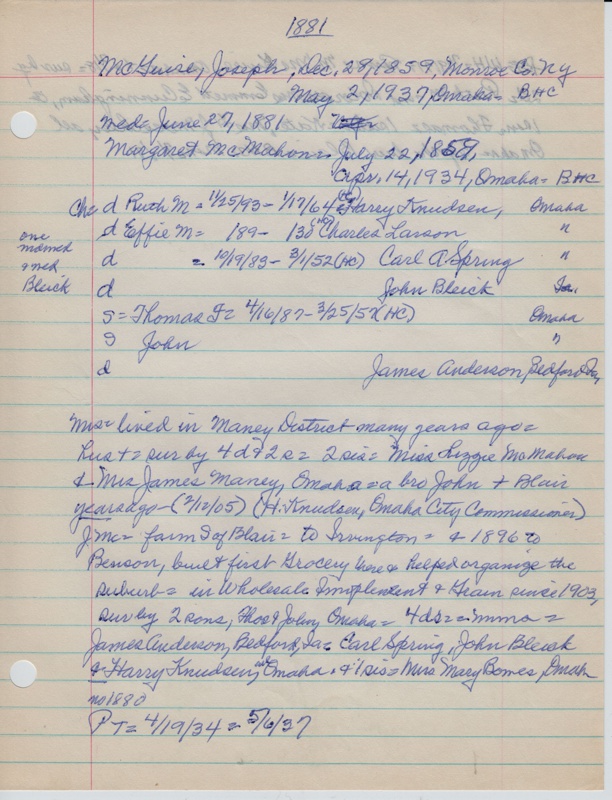 1881
McGuire, Joseph, Dec. 28, 1859, Monroe Co. Ny
May 2, 1937, Omaha = BHC
wed = June 27, 1881
Margaret McMahon = July 22, 1859,
Apr. 14, 1934, Omaha = BHC
Chr d Ruth M = 11/25/93 - 1/17/64 (HC) Harry Knudsen, Omaha
d Effie M = 189 - 130 Charles Larson "
one married & ned Bleick
d = 10/19/83 - 3/1/52 (HC) Carl A Spring "
d John Bleick Ia.
S = Thomas F = 4/16/87 - 3/25/57 (HC) Omaha
S John "
d James Anderson, Bedford Ia,
Mrs = lived in Maney District many years ago =
Hus + = sur by 4 d + 2 s = 2 sis = Miss Lizzie McMahon
& Mrs James Maney, Omaha = a bro John + Blair
years ago - (2/12/05) (H. Knudsen, Omaha City Commissioner)
J mc = farm S of Blair = to Irvington = & 1896 to
Benson, built first Grocery here & helped organize the
suburb = in Wholesale Implement & Grain since 1903,
sur by 2 sons, Thos & John, Omaha = 4 ds = mmo =
James Anderson, Bedford, Ia = Carl Spring, John Bleick
& Harry Knudsen, Omaha. & 1 sis = Mrs Mary Bomes, Omaha
no 1880
P T = 4/19/34 = 5/6/37